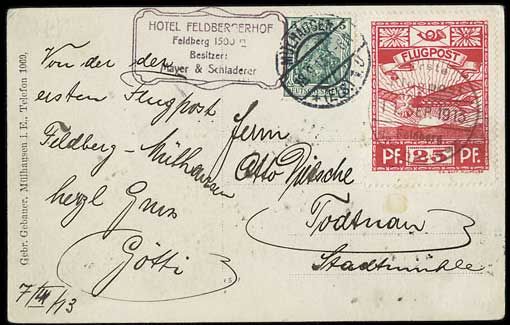 HOTEL FELDBERGERHOF
Feldberg 1500 m
Besitzer:
Mayer & Schladerer
MÜLHAUSEN
(ELS.)
FLUGPOST
SEP 1913
Feldberg
PF. 25 PF.
Gebr. Gebauer, Mülhausen i. E., Telefon 1069.
Von der
ersten Flugpost
Feldberg-Mülhausen
herzl Gruss
Götti
7/IX/13
Herrn
Otto
Todtnau
Stadtmühle